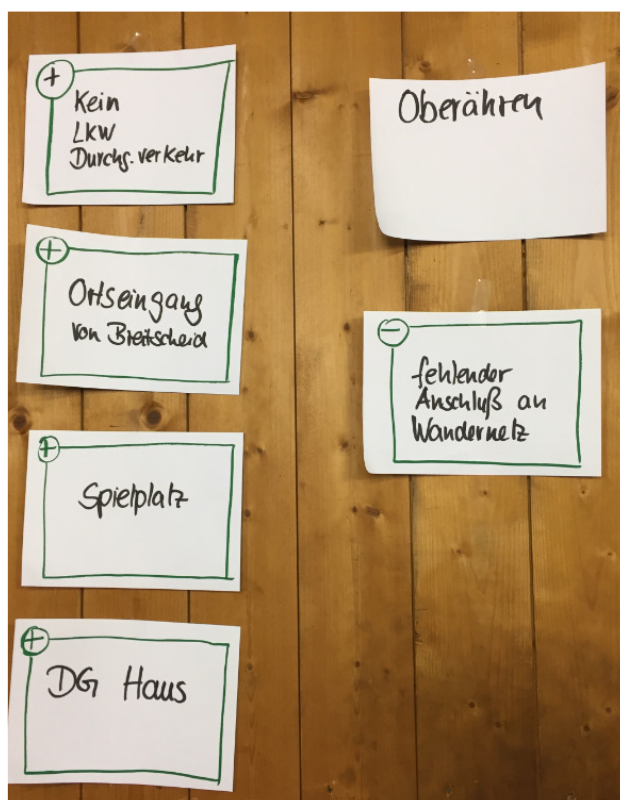 +
Kein
LKW
Durchg.verkehr
+
Ortseingang
von Breitscheid
+
Spielplatz
+
DG Haus
Oberähren
-
fehlender
Anschluß an
Wandernetz